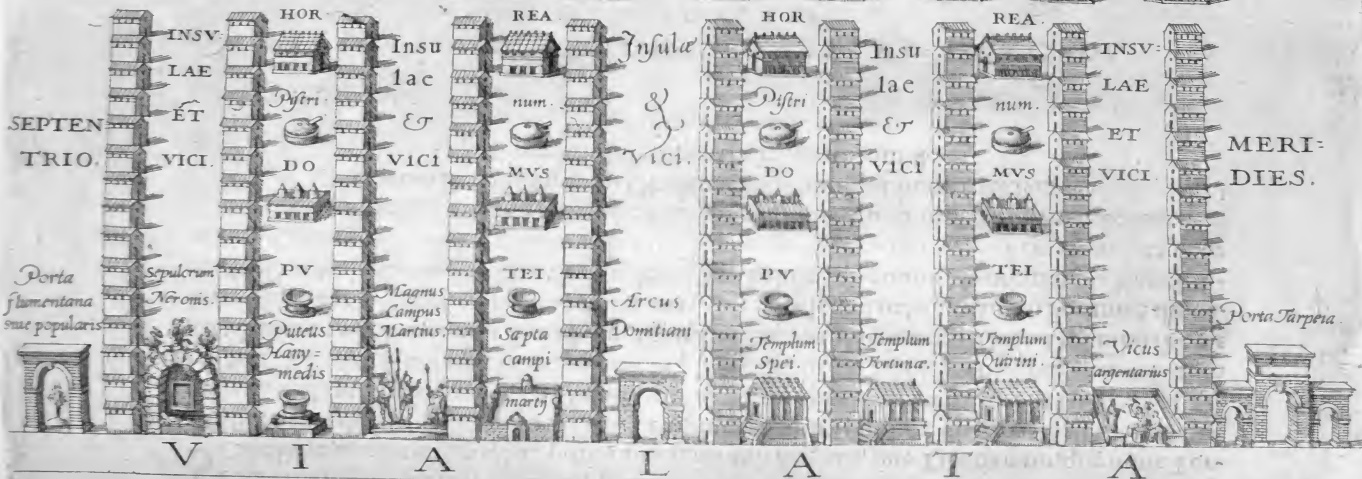 SEPTEN
TRIO.
INSV
LAE
ET
VICI.
HOR
REA
Insu
lae
&
VICI
Piſtri
num.
DO
MVS
PV
TEI
Inſulæ
&
VICI.
HOR
REA.
Insu
lae
&
VICI
Piſtri
num.
DO
MVS
PV
TEI
INSV=
LAE
ET
VICI.
MERI=
DIES.
Porta
flumentana
siue popularis
Sepulcrum
Neronis.
Puteus
Hany=
medis
Magnus
Campus
Martius.
Sæpta
campi
martij
Arcus
Domitiani
Templum
Spei.
Templum
Fortunæ.
Templum
Quirini.
Vicus
argentarius
Porta Tarpeia.
VIA LATA